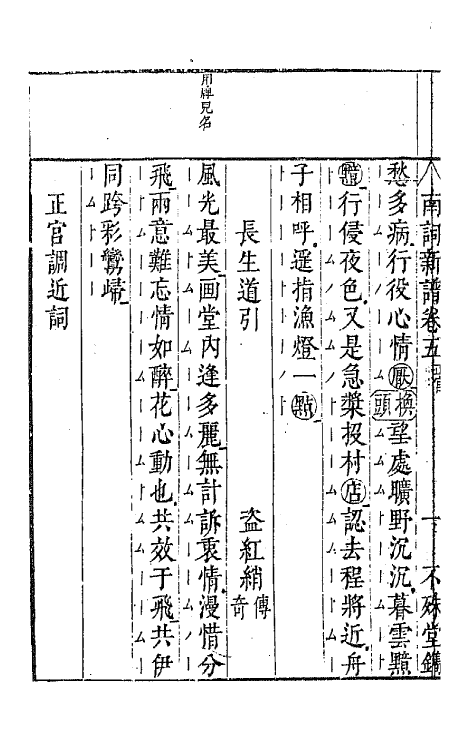 南詞新譜卷五 一 不殊堂鐫
愁多病行役心情厭換頭望處曠野沉沉暮雲黯
黯行侵夜色又是急槳投村店認去程將近舟
子相呼遥指漁燈一點
長生道引 盗紅綃傳奇
用牌兒名
風光最美画堂內逢多麗無計訴衷情漫惜分
飛兩意難忘情如醉花心動也共效于飛共伊
同跨彩鸞歸
正宮調近詞